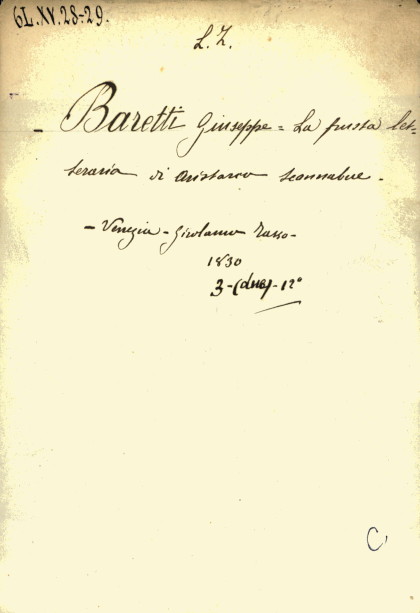 6L.XV.28-29.
L. Z.
- Baretti Giuseppe = La frusta let-
teraria di Aristarco Scannabue -
- Venezia - Girolamo Tasso -
1830
3 - (due) - 12°
C,